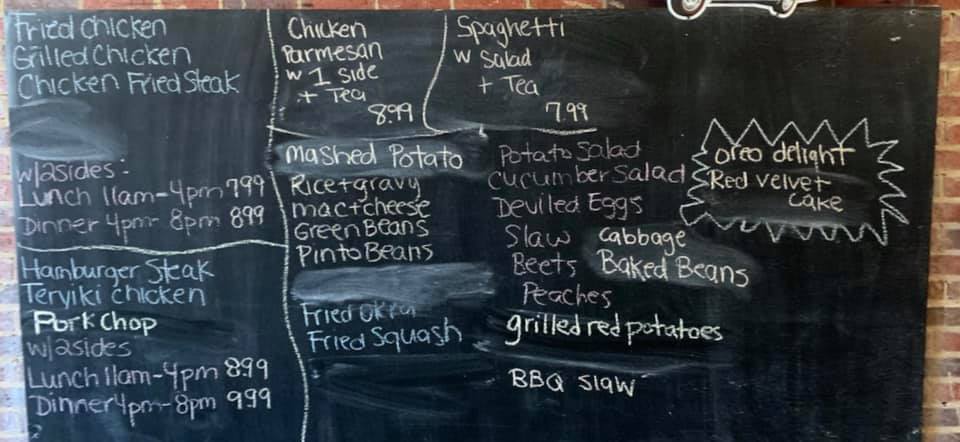 Fried Chicken
Grilled Chicken
Chicken Fried Steak
w/2sides:
Lunch 11am-4pm 799
Dinner 4pm- 8pm 899
Hamburger Steak
Teryiki chicken
Pork Chop
w/2sides
Lunch 11am-4pm 899
Dinner 4pm-8pm 999
Chicken
Parmesan
w 1 side
+ Tea
899
Spaghetti
w Salad
+ Tea
7.99
Mashed Potato
Rice+gravy
mac+cheese
Green Beans
Pinto Beans
Fried Okra
Fried Squash
Potato Salad
Cucumber Salad
Devilled Eggs
Slaw cabbage
Beets Baked Beans
Peaches
grilled red potatoes
BBQ Slaw
oreo delight
Red velvet
cake